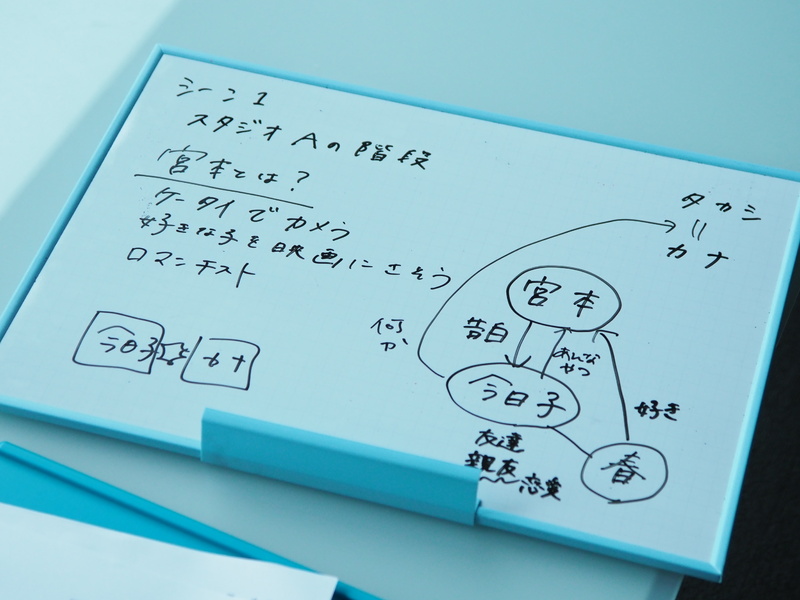 シーン1
スタジオAの階段
宮本とは?
ケータイでカメラ
好きな子を映画にさそう
ロマンチスト
今日子
カナ
タカシ
カナ
宮本
何か
告白
あんな
やつ
今日子
好き
春
友達
親友
恋愛